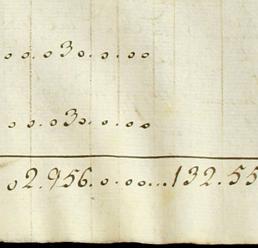 o o. .o3o. o. .oo
o o. .o3o. o. .oo
o2.956. o. .oo...132.55